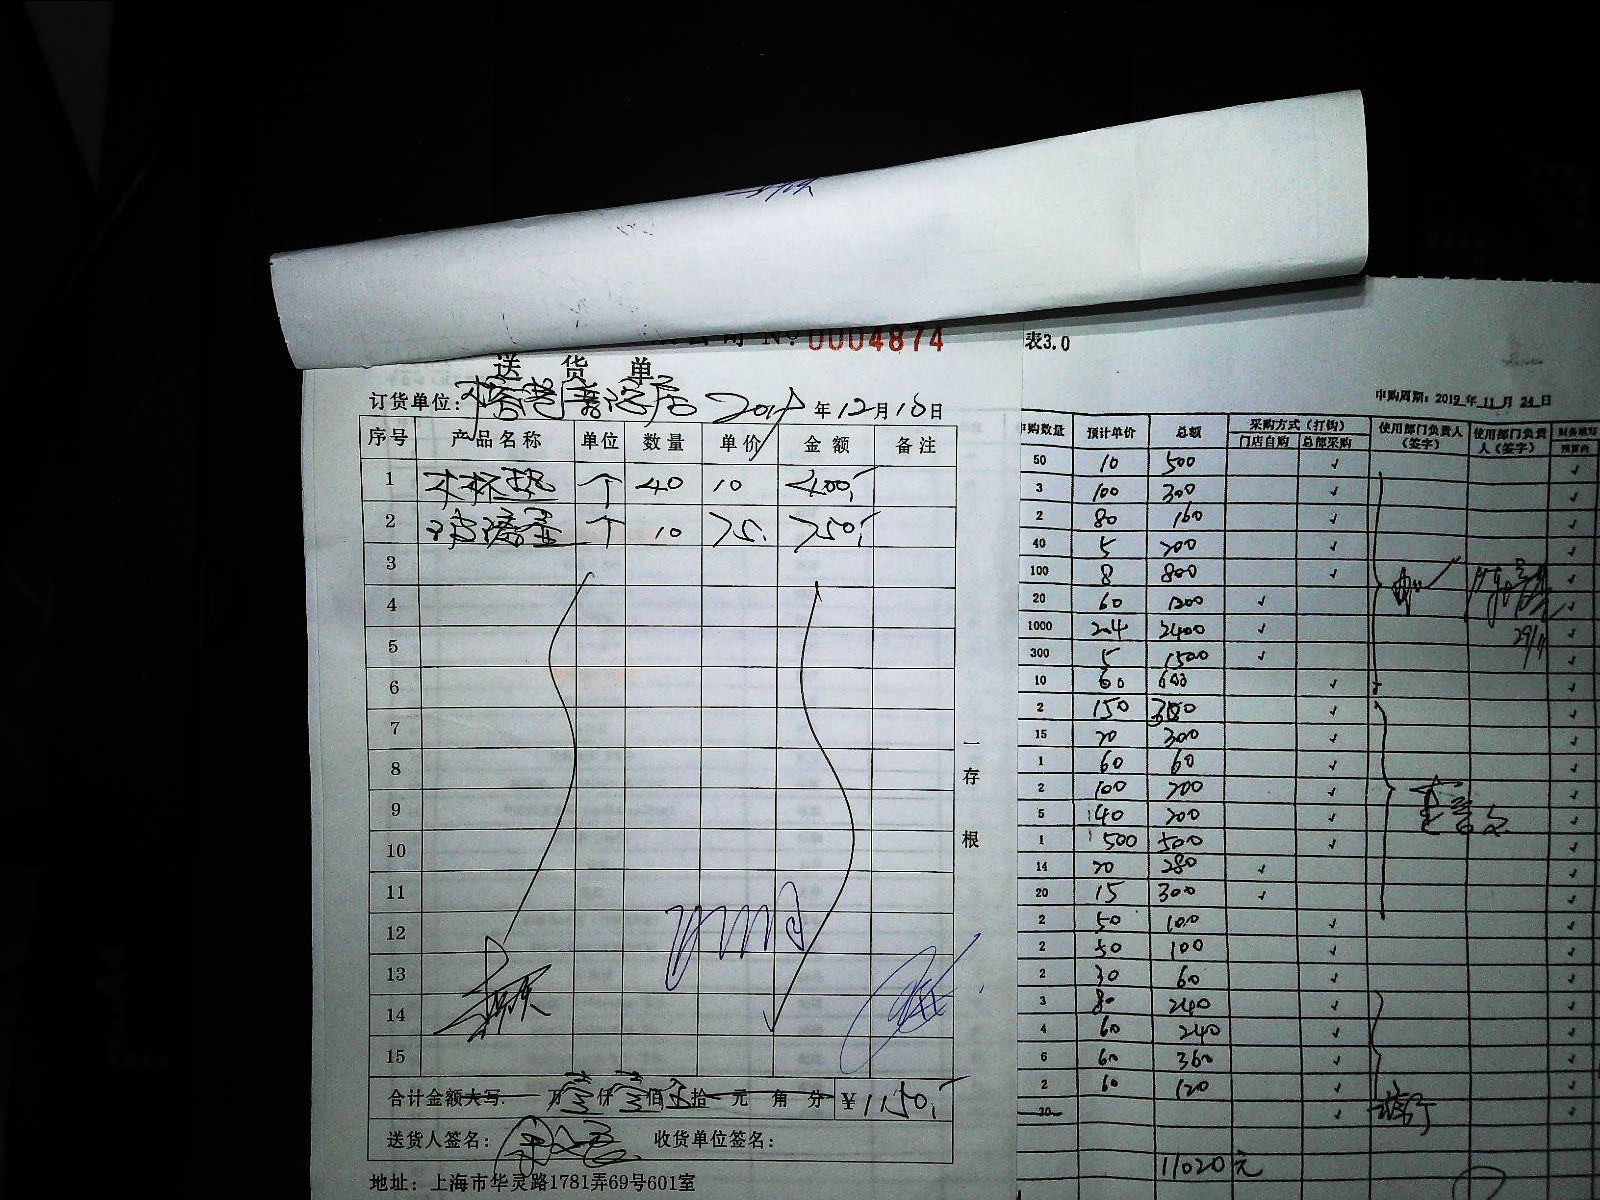 公司 No 0004874
送货单
订货单位: 年12月10日
序号 产品名称 单位 数量 单价 金额 备注
1 水杯 个 40 10 400,-
2 玻璃 个 10 75. 750,-
3
4
5
6
7
8
9
10
11
12
13
14
15
合计金额大写: 万壹仟壹佰伍拾元角分 ¥1150,-
送货人签名: 收货单位签名:
地址: 上海市华灵路1781弄69号601室
一存根
表3.0
申购周期: 2019年11月24日
申购数量 预计单价 总额 采购方式(打钩) 使用部门负责人(签字) 使用部门负责人(签字) 财务填写
门店自购 总部采购 预算内
50 10 500 ✓ ✓
3 100 300 ✓ ✓
2 80 160 ✓ ✓
40 5 200 ✓ ✓
100 8 800 ✓ ✓
20 60 1200 ✓ ✓
1000 2.4 2400 ✓ ✓
29/11
300 5 1500 ✓ ✓
10 60 600 ✓ ✓
2 150 300 ✓ ✓
15 20 300 ✓ ✓
1 60 60 ✓ ✓
2 100 200 ✓ ✓
5 40 200 ✓ ✓
1 500 500 ✓ ✓
14 20 280 ✓ ✓
20 15 300 ✓ ✓
2 50 100 ✓ ✓
2 50 100 ✓ ✓
2 30 60 ✓ ✓
3 80 240 ✓ ✓
4 60 240 ✓ ✓
6 60 360 ✓ ✓
2 60 120 ✓ ✓
20 ✓ ✓
11020元